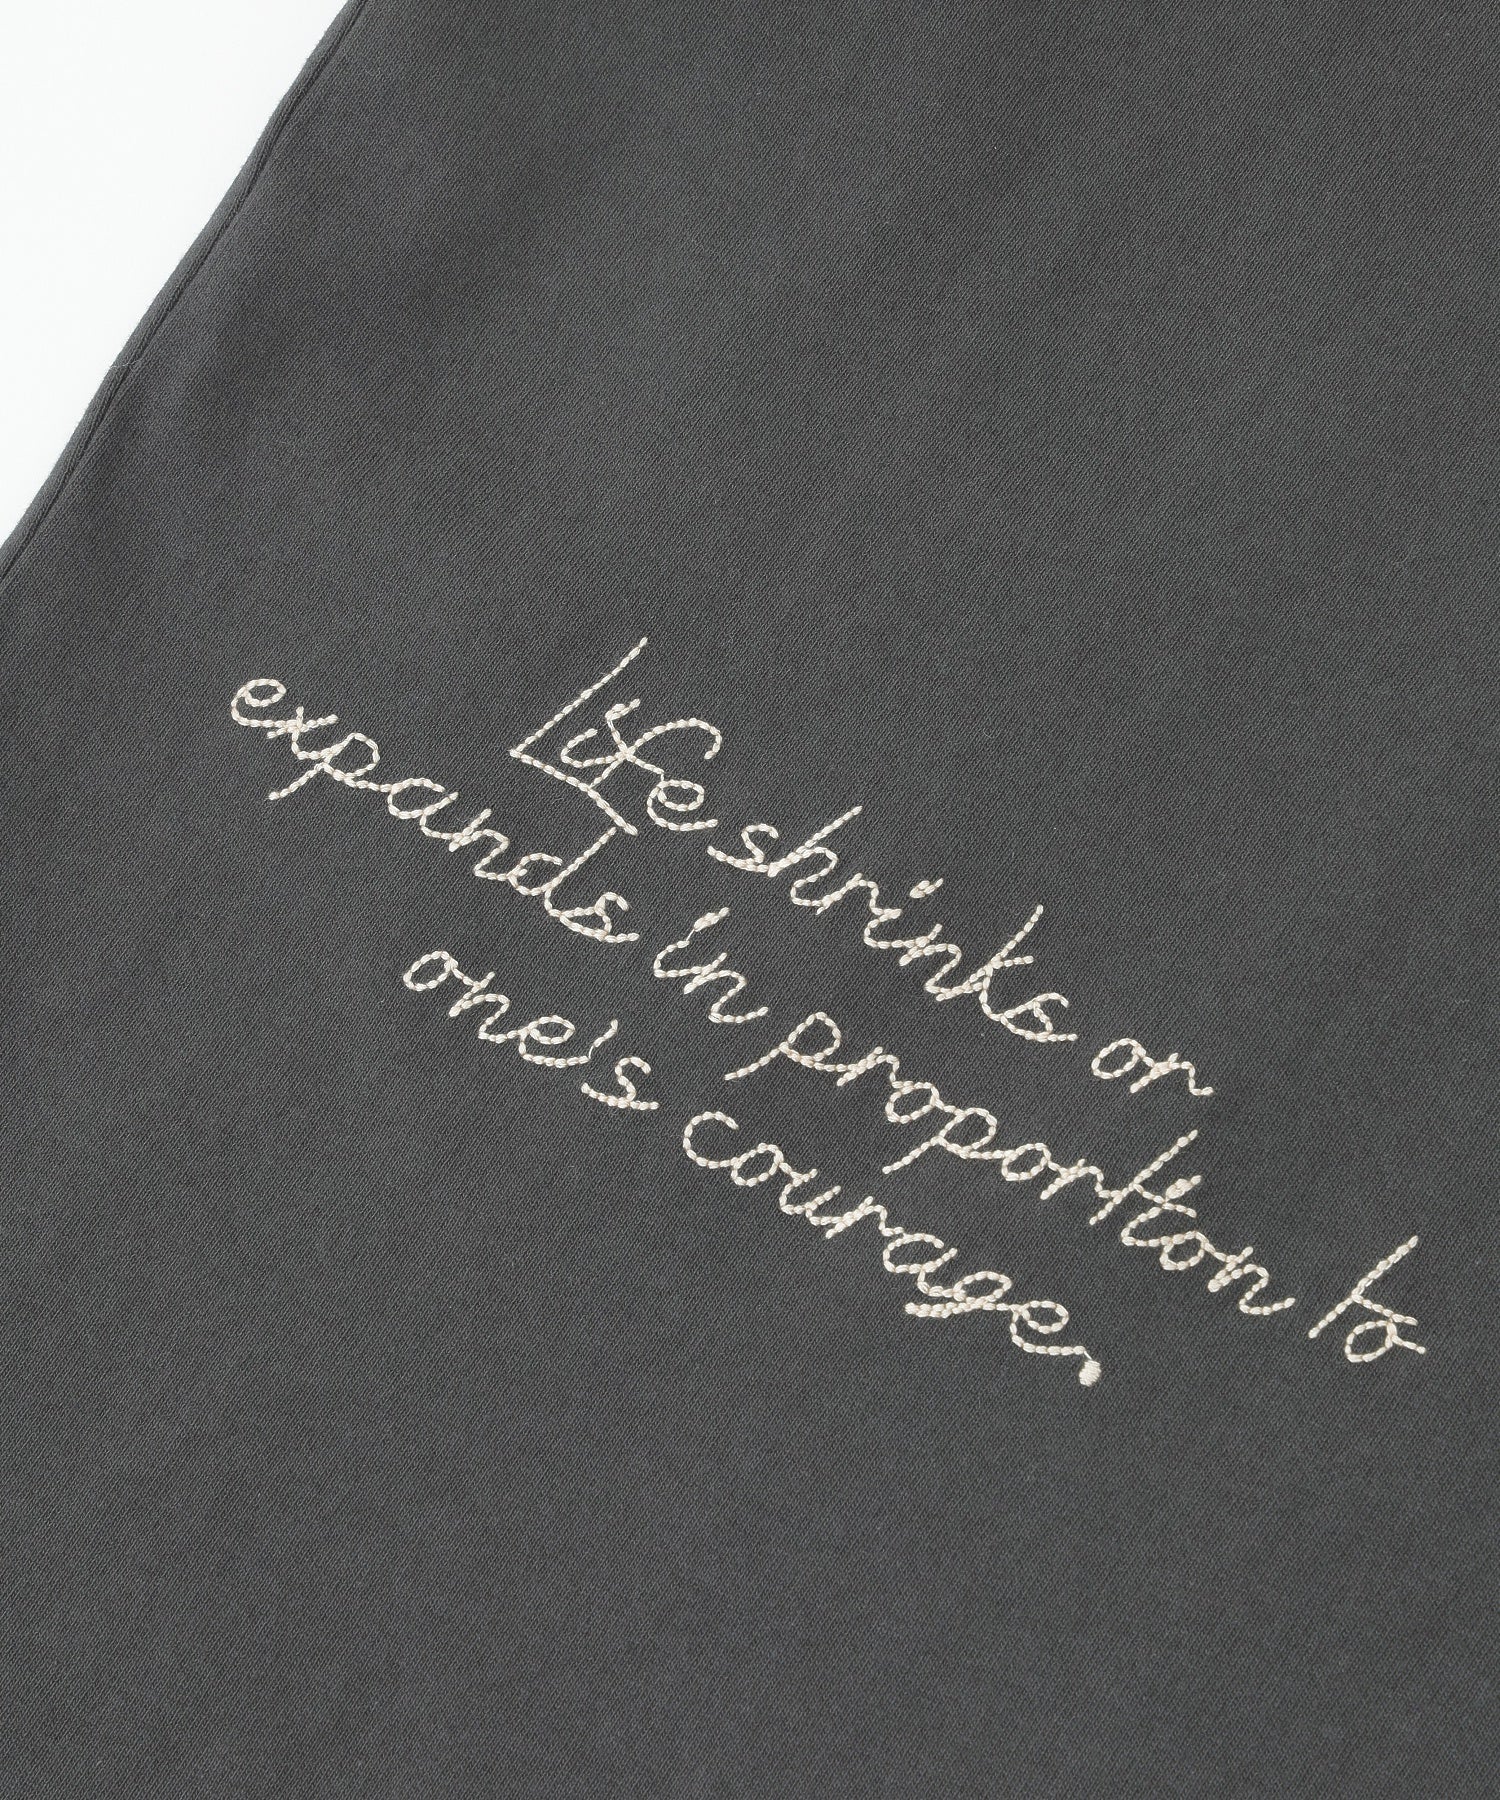 Life shrinks or
expands in proportion to
one's courage.